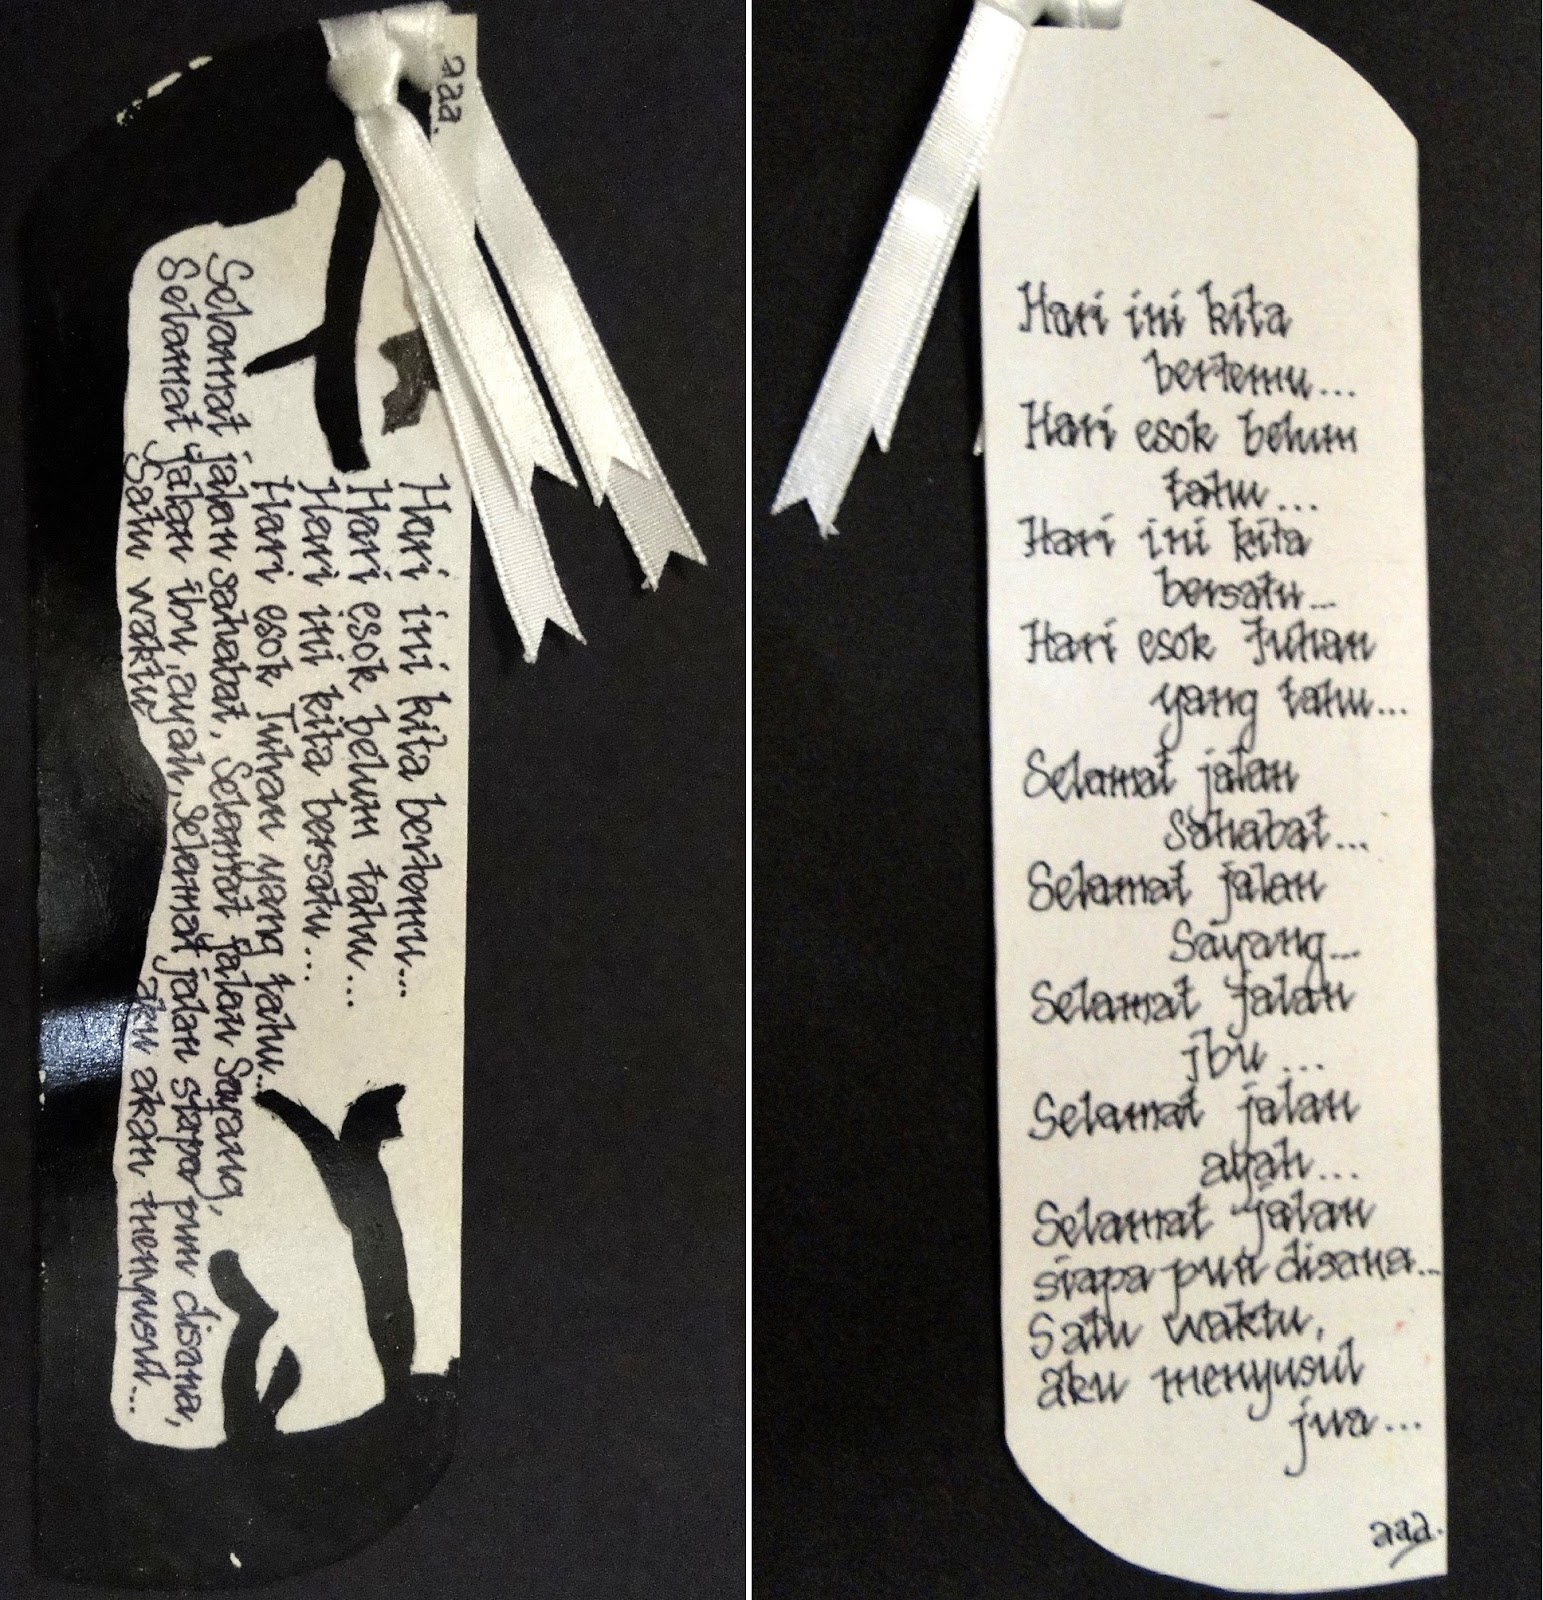 aaa.
Hari ini kita bertemu...
Hari esok belum tahu...
Hari ini kita bersatu...
Hari esok Tuhan yang tahu...
Selamat jalan sahabat, Selamat jalan Sayang,
Selamat jalan ibu, ayah, Selamat jalan siapa pun disana,
Satu waktu aku akan menyusul...
Hari ini kita
bertemu...
Hari esok belum
tahu...
Hari ini kita
bersatu...
Hari esok Tuhan
yang tahu...
Selamat jalan
Sahabat...
Selamat jalan
Sayang...
Selamat jalan
ibu...
Selamat jalan
ayah...
Selamat jalan
siapa pun disana...
Satu waktu,
aku menyusul
jua...
aaa.